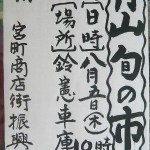 山旬の市
[日時]八月五日(木)10時
[場所]鈴憲車庫
宮町商店街振興